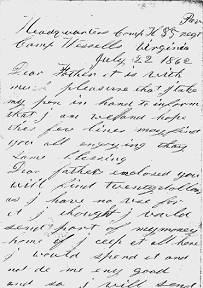 Headquarters Comp H 85 regt
Camp Wessells Virginia
July 22 1862
Dear Father it is with
much pleasure that I take
my pen in hand to inform
that I am well and hope
thes few lines may find
you all enjoying they
same blessing
Dear father enclosed you
will find twenty dollars
as I have no use for
it I thought I would
send part of my money
home if I keep it all here
I would spend it and
not do me eny good
and so I will send